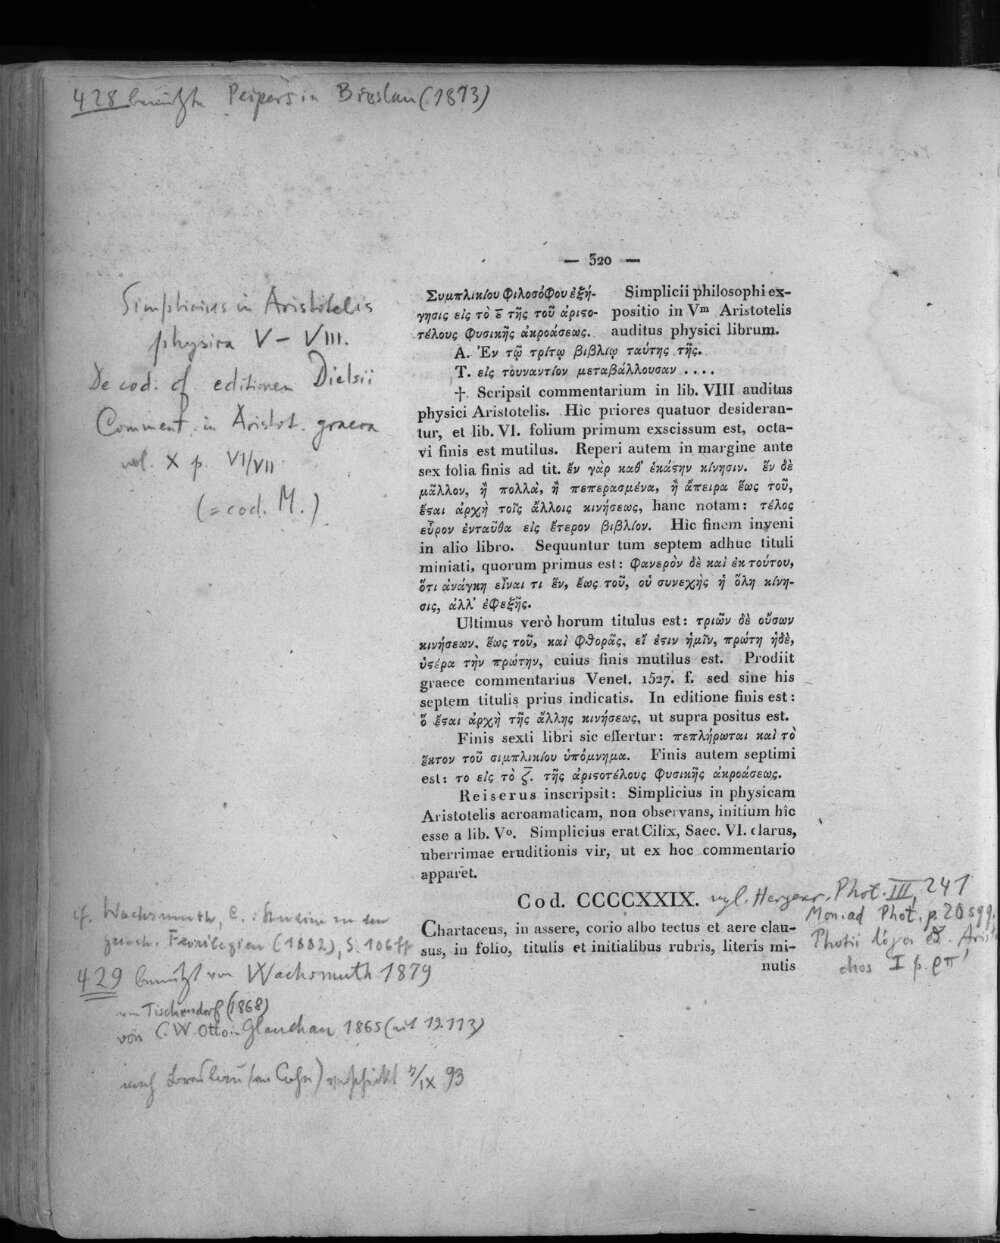 428 benützte Peipers in Breslau (1873)
— 320 —
Simplicius in Aristotelis
physica V – VIII.
De cod. cf. editionem Dielsii
Comment. in Aristot. graeca
vol. X p. VI/VII
(= cod. M.)
Συμπλικίου φιλοσόφου ἐξή-
γησις εἰς τὸ ε̄ τῆς τοῦ ἀριϛο-
τέλους φυσικῆς ἀκροάσεως.
Simplicii philosophi ex-
positio in Vm Aristotelis
auditus physici librum.
Α. Ἐν τῷ τρίτῳ βιβλίῳ ταύτης τῆς.
Τ. εἰς τοὐναντίον μεταβάλλουσαν ....
†. Scripsit commentarium in lib. VIII auditus
physici Aristotelis. Hic priores quatuor desideran-
tur, et lib. VI. folium primum exscissum est, octa-
vi finis est mutilus. Reperi autem in margine ante
sex folia finis ad tit. ἓν γὰρ καθ' ἑκάϛην κίνησιν. ἓν δὲ
μᾶλλον, ἢ πολλὰ, ἢ πεπερασμένα, ἢ ἄπειρα ἕως τοῦ,
ἔϛαι ἀρχὴ τοῖς ἄλλοις κινήσεως, hanc notam: τέλος
εὗρον ἐνταῦθα εἰς ἕτερον βιβλίον. Hic finem inveni
in alio libro. Sequuntur tum septem adhuc tituli
miniati, quorum primus est: φανερὸν δὲ καὶ ἐκ τούτου,
ὅτι ἀνάγκη εἶναι τι ἓν, ἕως τοῦ, οὐ συνεχὴς ἡ ὅλη κίνη-
σις, ἀλλ' ἐφεξῆς.
Ultimus verò horum titulus est: τριῶν δὲ οὔσων
κινήσεων, ἕως τοῦ, καὶ φθορᾶς, εἴ ἐϛιν ἡμῖν, πρώτη ἡδὲ,
ὑϛέρα τὴν πρώτην, cuius finis mutilus est. Prodiit
graece commentarius Venet. 1527. f. sed sine his
septem titulis prius indicatis. In editione finis est:
ὃ ἔϛαι ἀρχὴ τῆς ἄλλης κινήσεως, ut supra positus est.
Finis sexti libri sic effertur: πεπλήρωται καὶ τὸ
ἕκτον τοῦ σιμπλικίου ὑπόμνημα. Finis autem septimi
est: το εἰς τὸ ζ̄. τῆς ἀριϛοτέλους φυσικῆς ἀκροάσεως.
Reiserus inscripsit: Simplicius in physicam
Aristotelis acroamaticam, non observans, initium hîc
esse a lib. Vo. Simplicius erat Cilix, Saec. VI. clarus,
uberrimae eruditionis vir, ut ex hoc commentario
apparet.
Cod. CCCCXXIX. vgl. Hergenr. Phot. III, 241
Mon. ad Phot. p. 20 sqq.
Photii λόγοι ed. Arist
chos I p. ρπ'
Chartaceus, in assere, corio albo tectus et aere clau-
sus, in folio, titulis et initialibus rubris, literis mi-
nutis
cf. Wachsmuth, C.: Studien zu den
griech. Florilegien (1882), S. 106 ff
429 benützt von Wachsmuth 1879
von Tischendorf (1868)
von C. W. Otto in Glauchau 1865 (mit 19.113)
nach Breslau (an Cohn) geschickt /IX 93